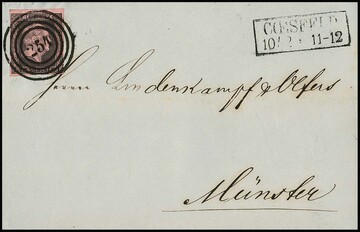 254
COESFELD
10 2 11-12
Herrn Lindenkampf & Olfers
Münster